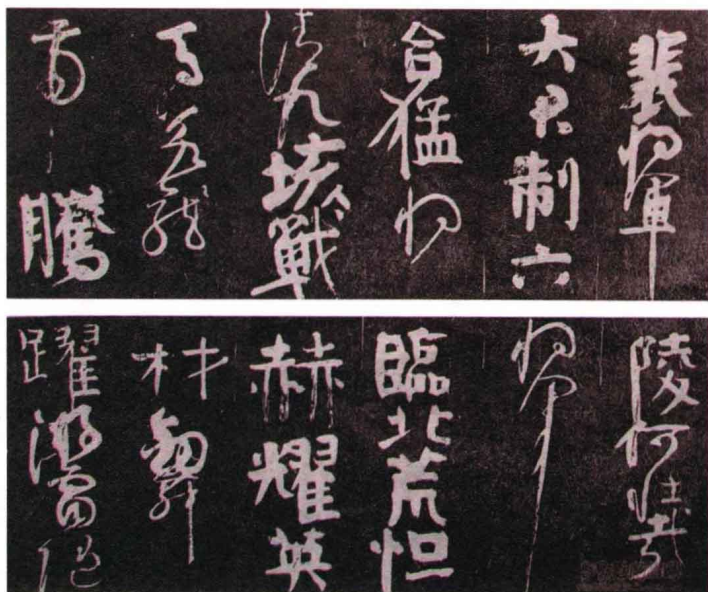 裴將軍
大君制六
合猛將
清九垓戰
馬若龍
虎騰
陵何壯哉
將軍
臨北荒烜
赫耀英
材劍舞
躍游雷隨